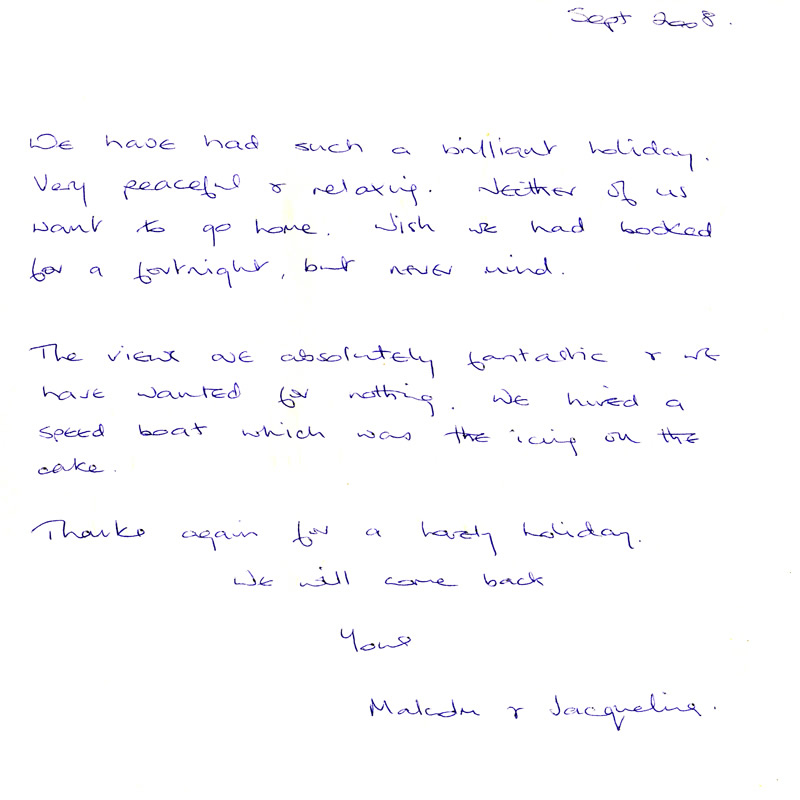 Sept 2008.
We have had such a brilliant holiday.
Very peaceful & relaxing. Neither of us
want to go home. Wish we had booked
for a fortnight, but never mind.
The views are absolutely fantastic & we
have wanted for nothing. We hired a
speed boat which was the icing on the
cake.
Thanks again for a lovely holiday.
We will come back
Yours
Malcolm & Jacqueline.